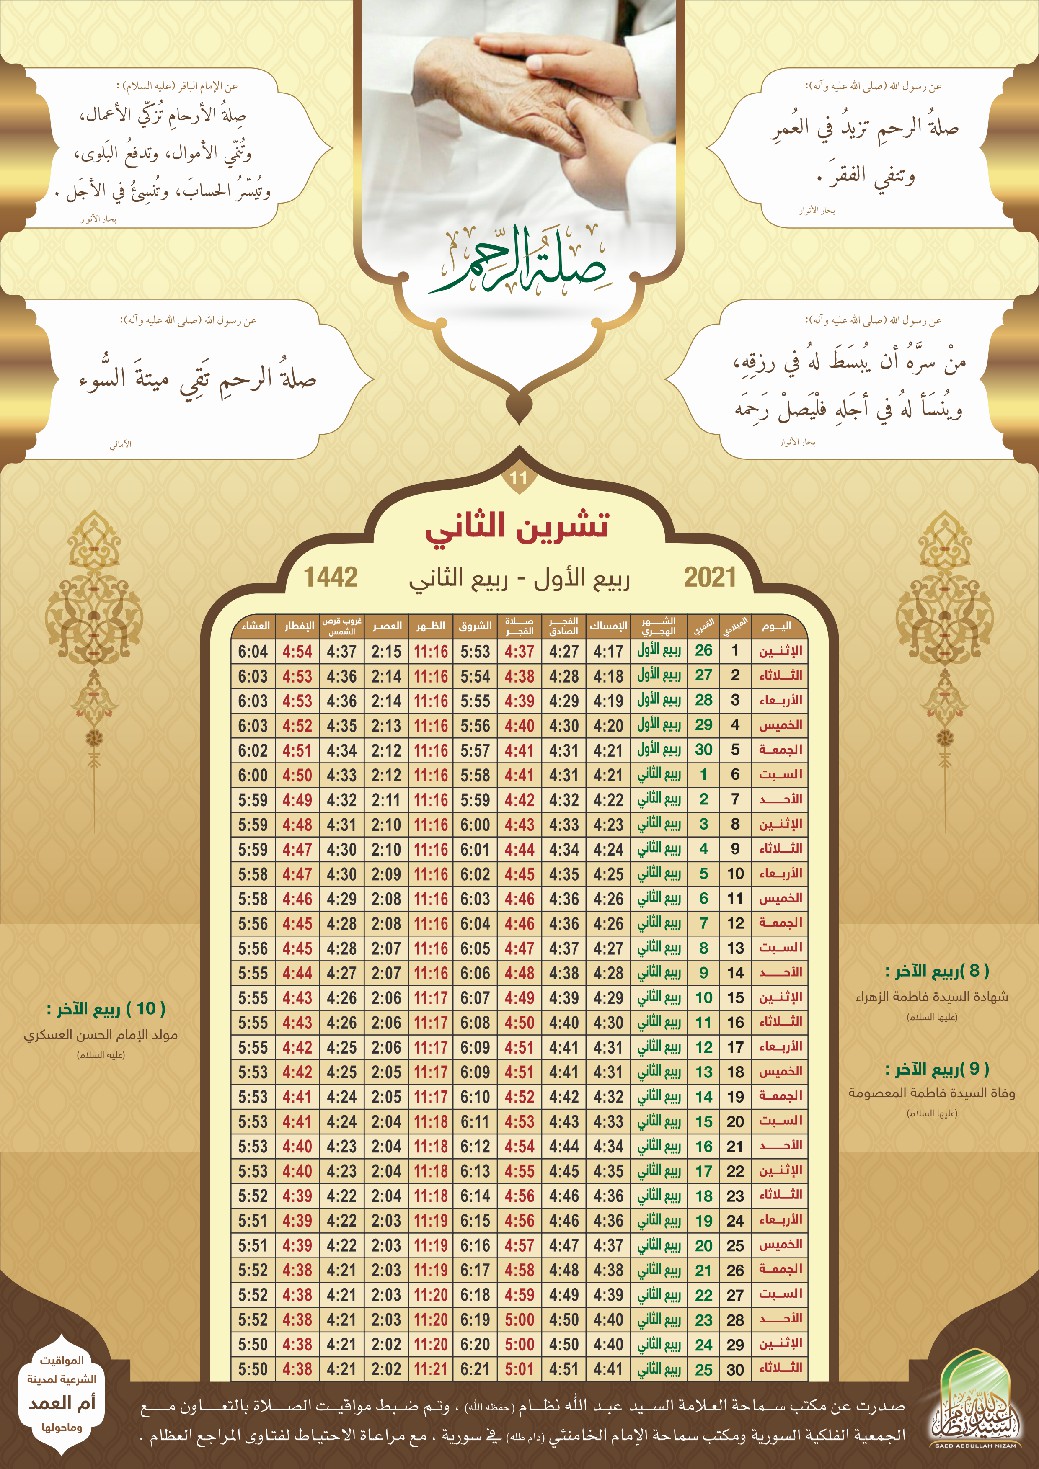 عن رسول الله (صلى الله عليه وآله):
صلةُ الرحمِ تزيدُ في العُمرِ
وتنفي الفقرَ .
بحار الأنوار
عن الإمام الباقر (عليه السلام) :
صِلةُ الأرحامِ تُزكّي الأعمال،
وتُنمّي الأموال، وتدفعُ البَلوى،
وتُيسّرُ الحسابَ، وتُنسِئُ في الأجَل .
بحار الأنوار
صلة الرحم
عن رسول الله (صلى الله عليه وآله):
منْ سرَّهُ أن يُبسَطَ لهُ في رزقِهِ،
ويُنسَأ لهُ في أجَلهِ فلْيَصلْ رَحِمَه
بحار الأنوار
عن رسول الله (صلى الله عليه وآله):
صلةُ الرحمِ تَقِي ميتةَ السُّوء
الأمالي
11
تشرين الثاني
2021 ربيع الأول - ربيع الثاني 1442
اليـوم الميلادي القمري الشـهر الهجري الإمساك الفجـر الصادق صـلاة الفجر الشروق الظـهر العصر غروب قرص الشمس الإفطار العشاء
الإثنـين 1 26 ربيع الأول 4:17 4:27 4:37 5:53 11:16 2:15 4:37 4:54 6:04
الثـلاثاء 2 27 ربيع الأول 4:18 4:28 4:38 5:54 11:16 2:14 4:36 4:53 6:03
الأربـعاء 3 28 ربيع الأول 4:19 4:29 4:39 5:55 11:16 2:14 4:36 4:53 6:03
الخميس 4 29 ربيع الأول 4:20 4:30 4:40 5:56 11:16 2:13 4:35 4:52 6:03
الجمعـة 5 30 ربيع الأول 4:21 4:31 4:41 5:57 11:16 2:12 4:34 4:51 6:02
السـبت 6 1 ربيع الثاني 4:21 4:31 4:41 5:58 11:16 2:12 4:33 4:50 6:00
الأحــد 7 2 ربيع الثاني 4:22 4:32 4:42 5:59 11:16 2:11 4:32 4:49 5:59
الإثنـين 8 3 ربيع الثاني 4:23 4:33 4:43 6:00 11:16 2:10 4:31 4:48 5:59
الثـلاثاء 9 4 ربيع الثاني 4:24 4:34 4:44 6:01 11:16 2:10 4:30 4:47 5:59
الأربـعاء 10 5 ربيع الثاني 4:25 4:35 4:45 6:02 11:16 2:09 4:30 4:47 5:58
الخميس 11 6 ربيع الثاني 4:26 4:36 4:46 6:03 11:16 2:08 4:29 4:46 5:58
الجمعـة 12 7 ربيع الثاني 4:26 4:36 4:46 6:04 11:16 2:08 4:28 4:45 5:56
السـبت 13 8 ربيع الثاني 4:27 4:37 4:47 6:05 11:16 2:07 4:28 4:45 5:56
الأحــد 14 9 ربيع الثاني 4:28 4:38 4:48 6:06 11:16 2:07 4:27 4:44 5:55
الإثنـين 15 10 ربيع الثاني 4:29 4:39 4:49 6:07 11:17 2:06 4:26 4:43 5:55
الثـلاثاء 16 11 ربيع الثاني 4:30 4:40 4:50 6:08 11:17 2:06 4:26 4:43 5:55
الأربـعاء 17 12 ربيع الثاني 4:31 4:41 4:51 6:09 11:17 2:06 4:25 4:42 5:55
الخميس 18 13 ربيع الثاني 4:31 4:41 4:51 6:09 11:17 2:05 4:25 4:42 5:53
الجمعـة 19 14 ربيع الثاني 4:32 4:42 4:52 6:10 11:17 2:05 4:24 4:41 5:53
السـبت 20 15 ربيع الثاني 4:33 4:43 4:53 6:11 11:18 2:04 4:24 4:41 5:53
الأحــد 21 16 ربيع الثاني 4:34 4:44 4:54 6:12 11:18 2:04 4:23 4:40 5:53
الإثنـين 22 17 ربيع الثاني 4:35 4:45 4:55 6:13 11:18 2:04 4:23 4:40 5:53
الثـلاثاء 23 18 ربيع الثاني 4:36 4:46 4:56 6:14 11:18 2:04 4:22 4:39 5:52
الأربـعاء 24 19 ربيع الثاني 4:36 4:46 4:56 6:15 11:19 2:03 4:22 4:39 5:51
الخميس 25 20 ربيع الثاني 4:37 4:47 4:57 6:16 11:19 2:03 4:22 4:39 5:51
الجمعـة 26 21 ربيع الثاني 4:38 4:48 4:58 6:17 11:19 2:03 4:21 4:38 5:52
السـبت 27 22 ربيع الثاني 4:39 4:49 4:59 6:18 11:20 2:03 4:21 4:38 5:52
الأحــد 28 23 ربيع الثاني 4:40 4:50 5:00 6:19 11:20 2:03 4:21 4:38 5:52
الإثنـين 29 24 ربيع الثاني 4:40 4:50 5:00 6:20 11:20 2:02 4:21 4:38 5:50
الثـلاثاء 30 25 ربيع الثاني 4:41 4:51 5:01 6:21 11:21 2:02 4:21 4:38 5:50
( 8 )ربيع الآخر :
شهادة السيدة فاطمة الزهراء
(عليها السلام)
( 9 )ربيع الآخر :
وفاة السيدة فاطمة المعصومة
(عليها السلام)
( 10 ) ربيع الآخر :
مولد الإمام الحسن العسكري
(عليه السلام)
المواقيت
الشرعية لمدينة
أم العمد
وماحولها
صدرت عن مكتب سماحة العلامة السيد عبد الله نظـام (حفظه الله) ، وتم ضبـط مواقيـت الصـلاة بالتعـاون مـع
الجمعية الفلكية السورية ومكتب سماحة الإمام الخامنئي (دام ظله) في سورية ، مع مراعاة الاحتياط لفتاوى المراجع العظام .
SAED ABDULLAH NIZAM